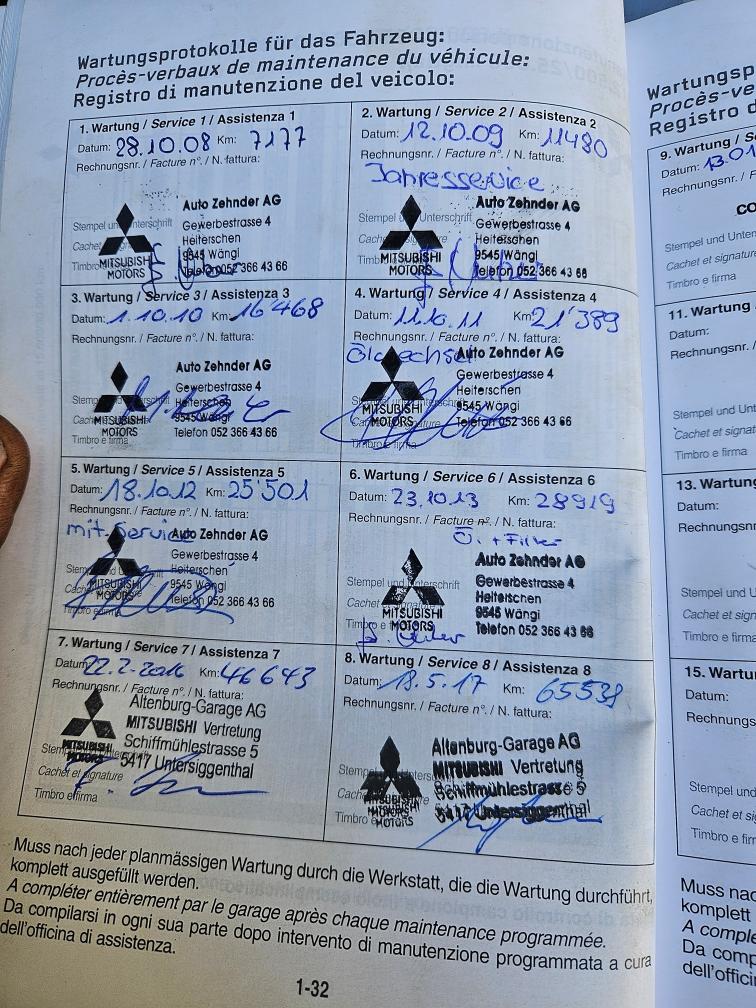 Wartungsprotokolle für das Fahrzeug:
Procès-verbaux de maintenance du véhicule:
Registro di manutenzione del veicolo:
1. Wartung / Service 1 / Assistenza 1
Datum: 28.10.08 Km: 7177
Rechnungsnr. / Facture n°. / N. fattura:
Stempel und Unterschrift
Cachet
Timbro
MITSUBISHI
MOTORS
Auto Zehnder AG
Gewerbestrasse 4
Heiterschen
9545 Wängi
Telefon 052 366 43 66
2. Wartung / Service 2 / Assistenza 2
Datum: 12.10.09 Km: 11480
Rechnungsnr. / Facture n°. / N. fattura:
Jahresservice
Stempel und Unterschrift
MITSUBISHI
MOTORS
Auto Zehnder AG
Gewerbestrasse 4
Heiterschen
9545 Wängi
Telefon 052 366 43 66
3. Wartung / Service 3 / Assistenza 3
Datum: 1.10.10 Km: 16'468
Rechnungsnr. / Facture n°. / N. fattura:
MITSUBISHI
MOTORS
Timbro e firma
Auto Zehnder AG
Gewerbestrasse 4
Heiterschen
9545 Wängi
Telefon 052 366 43 66
4. Wartung / Service 4 / Assistenza 4
Datum: 11.10.11 Km: 21'389
Rechnungsnr. / Facture n°. / N. fattura:
MITSUBISHI
MOTORS
Timbro e firma
Auto Zehnder AG
Gewerbestrasse 4
Heiterschen
9545 Wängi
Telefon 052 366 43 66
5. Wartung / Service 5 / Assistenza 5
Datum: 18.10.12 Km: 25'501
Rechnungsnr. / Facture n°. / N. fattura:
mit Service
MITSUBISHI
MOTORS
Auto Zehnder AG
Gewerbestrasse 4
Heiterschen
9545 Wängi
Telefon 052 366 43 66
6. Wartung / Service 6 / Assistenza 6
Datum: 23.10.13 Km: 28919
Rechnungsnr. / Facture n°. / N. fattura:
+ Filter
Stempel und Unterschrift
Cachet et signature
MITSUBISHI
MOTORS
Auto Zehnder AG
Gewerbestrasse 4
Heiterschen
9545 Wängi
Telefon 052 366 43 66
7. Wartung / Service 7 / Assistenza 7
Datum: 22.2.2016 Km: 46643
Rechnungsnr. / Facture n°. / N. fattura:
MITSUBISHI
MOTORS
Cachet et signature
Timbro e firma
Altenburg-Garage AG
MITSUBISHI Vertretung
Schiffmühlestrasse 5
5417 Untersiggenthal
8. Wartung / Service 8 / Assistenza 8
Datum: 18.5.17 Km: 65538
Rechnungsnr. / Facture n°. / N. fattura:
MITSUBISHI
MOTORS
Altenburg-Garage AG
MITSUBISHI Vertretung
Schiffmühlestrasse 5
5417 Untersiggenthal
Muss nach jeder planmässigen Wartung durch die Werkstatt, die die Wartung durchführt,
komplett ausgefüllt werden.
A compléter entièrement par le garage après chaque maintenance programmée.
Da compilarsi in ogni sua parte dopo intervento di manutenzione programmata a cura
dell'officina di assistenza.
1-32
Registro
9. Wartung
Datum:
Rechnungsnr.
Cachet et signature
Timbro e firma
11. Wartung
Datum:
Rechnungsnr.
Timbro e firma
13. Wartung
Datum:
Timbro e firma
15. Wartung
Datum:
Muss
komplett